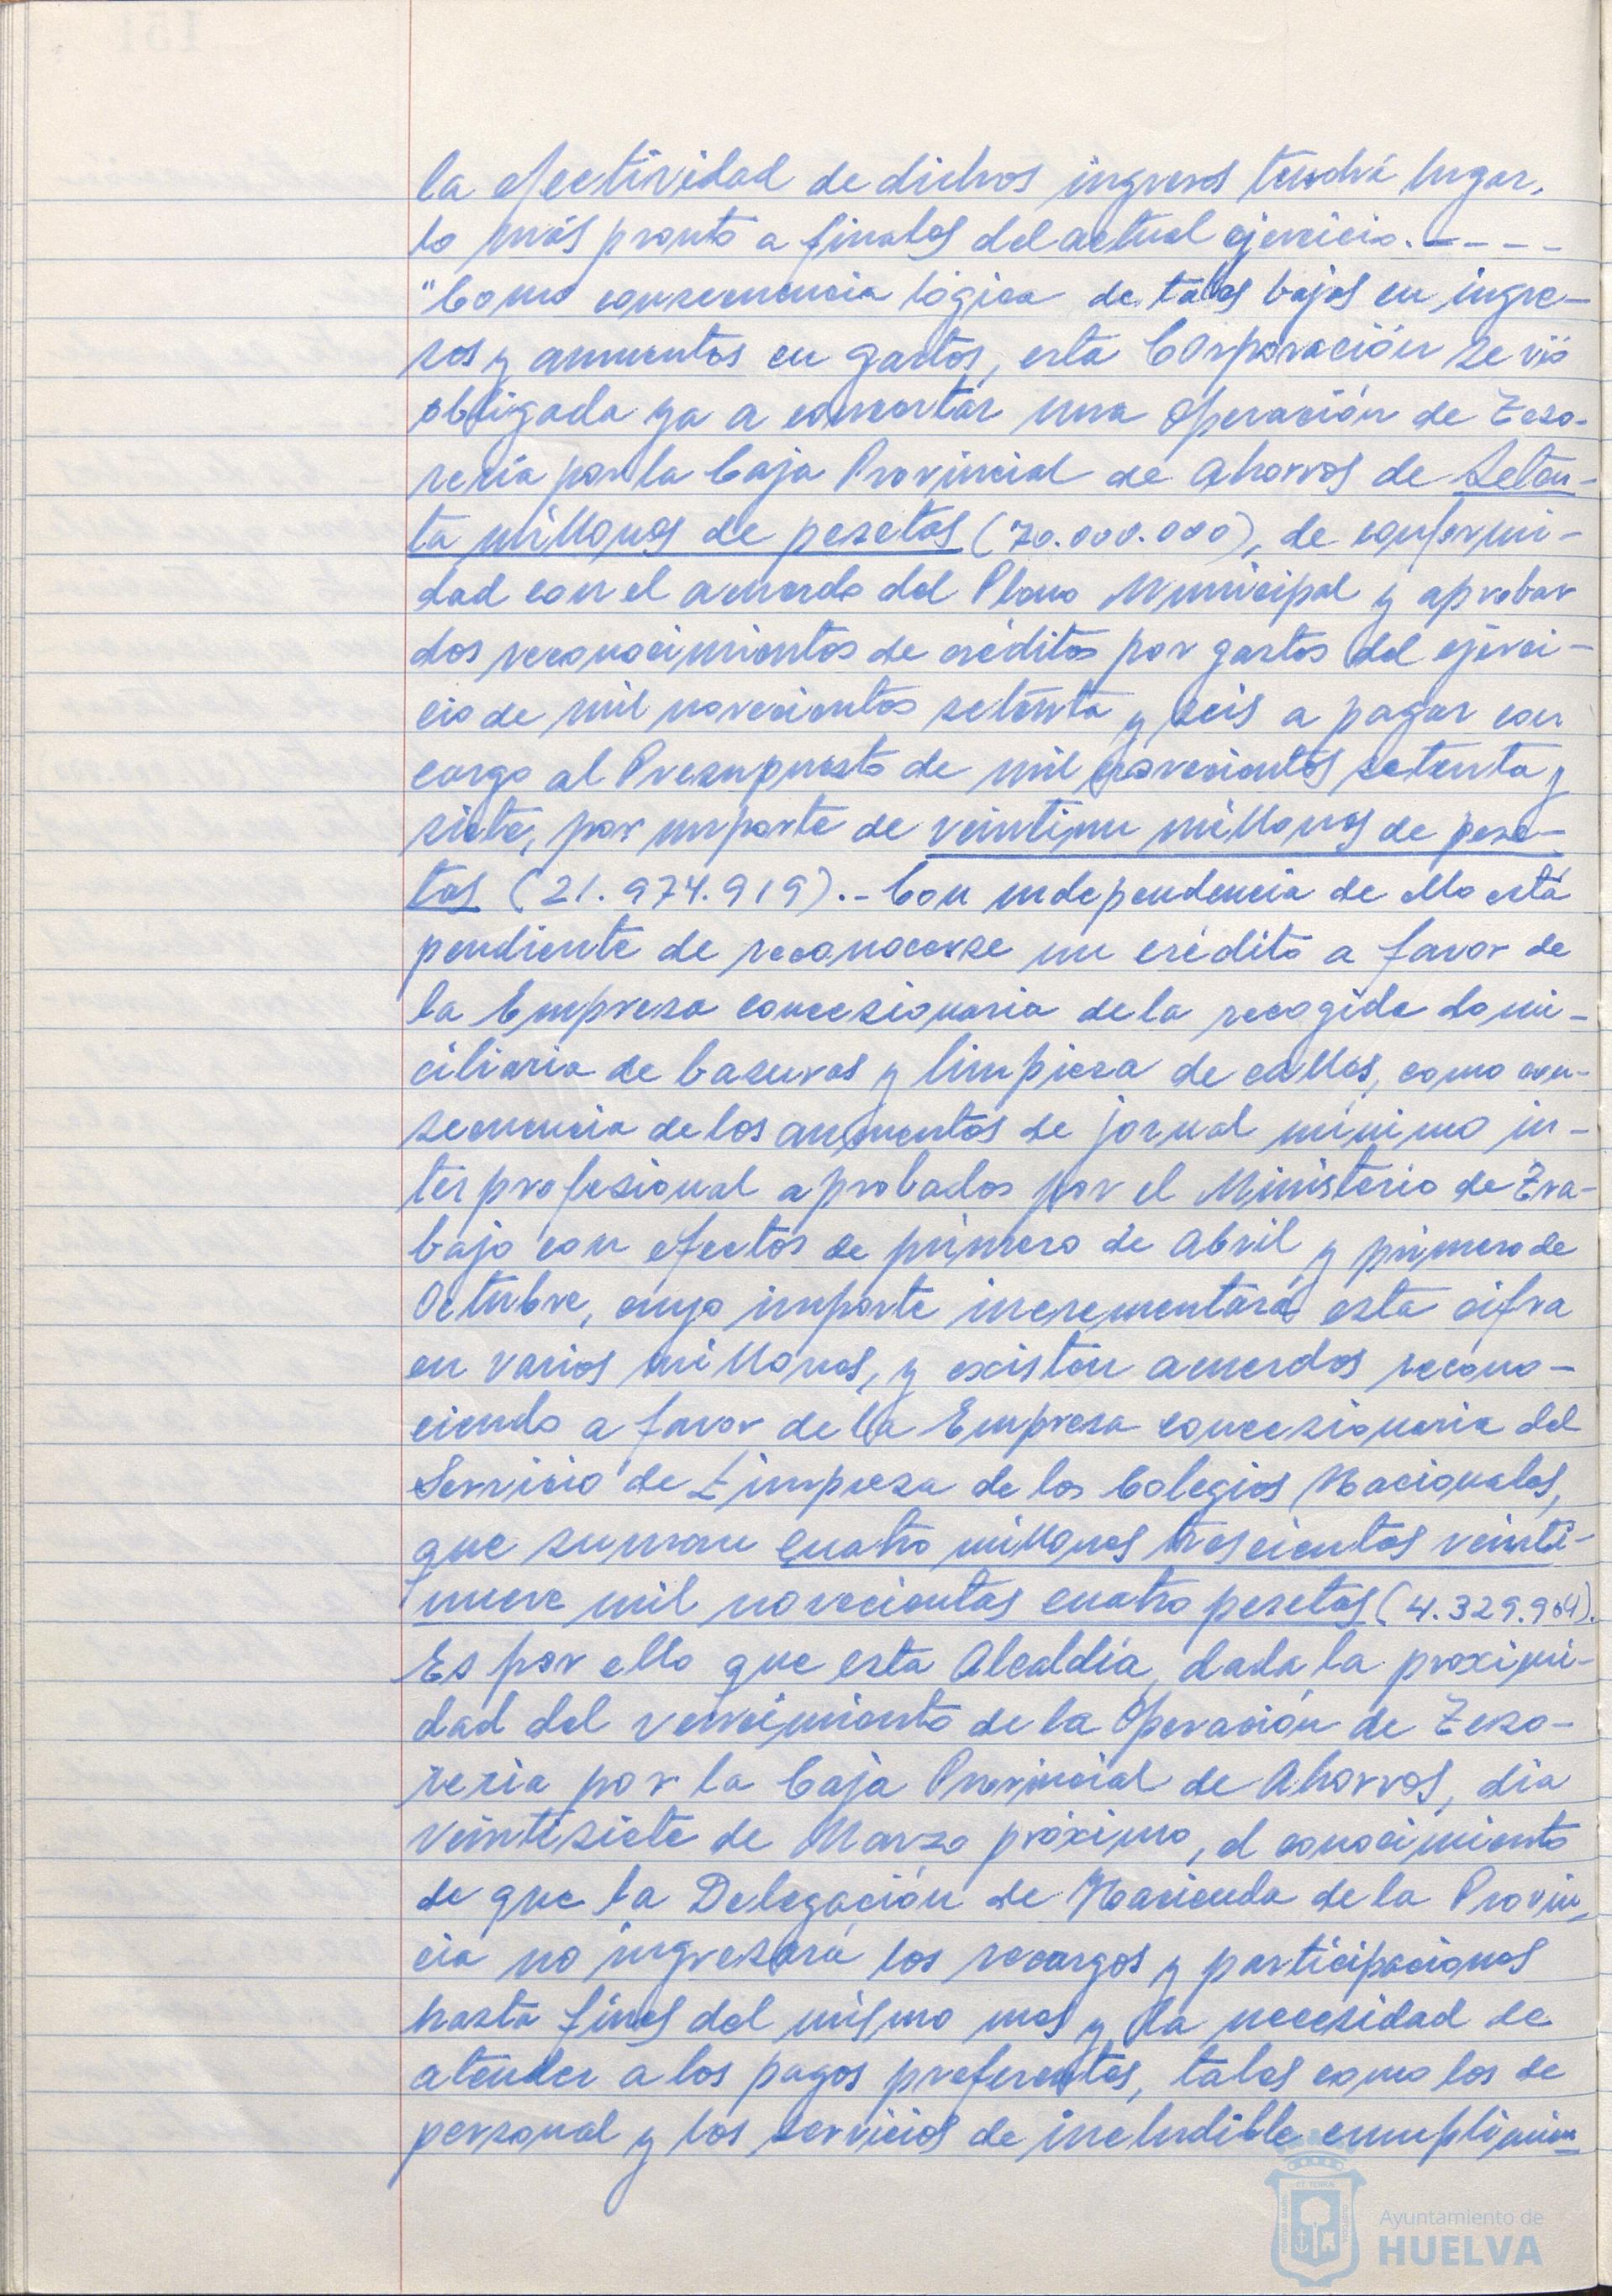 la efectividad de dichos ingresos tendrá lugar,
lo más pronto a finales del actual ejercicio.- - - -
"Como consecuencia lógica de tales bajas en ingre-
sos y aumentos en gastos, esta Corporación se vió
obligada ya a concertar una Operación de Teso-
rería por la Caja Provincial de Ahorros de Seten-
ta millones de pesetas (70.000.000), de conformi-
dad con el acuerdo del Pleno Municipal y aproba-
dos reconocimientos de créditos por gastos del ejerci-
cio de mil novecientos setenta y seis a pagar con
cargo al Presupuesto de mil novecientos setenta y
siete, por importe de veintiun millones de pese-
tas (21.974.919).- Con independencia de ello está
pendiente de reconocerse un crédito a favor de
la Empresa concesionaria de la recogida domi-
ciliaria de basuras y limpieza de calles, como con-
secuencia de los aumentos de jornal mínimo in-
terprofesional aprobados por el Ministerio de Tra-
bajo con efectos de primero de Abril y primero de
Octubre, cuyo importe incrementará esta cifra
en varios millones, y existen acuerdos recono-
ciendo a favor de la Empresa concesionaria del
Servicio de Limpieza de los Colegios Nacionales,
que suman cuatro millones trescientas veinti-
nueve mil novecientas cuatro pesetas (4.329.904).
Es por ello que esta Alcaldía, dada la proximi-
dad del vencimiento de la Operación de Teso-
rería por la Caja Provincial de Ahorros, día
veintisiete de Marzo próximo, el conocimiento
de que la Delegación de Hacienda de la Provin-
cia no ingresará los recargos y participaciones
hasta fines del mismo mes y la necesidad de
atender a los pagos preferentes, tales como los de
personal y los servicios de ineludible cumplimien
Ayuntamiento de
HUELVA